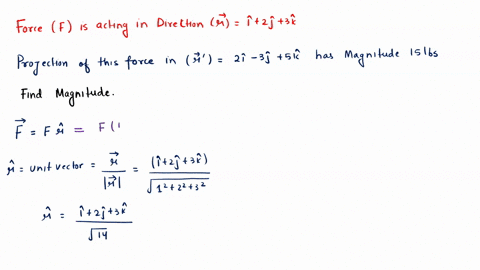 Force (F) is acting in Direction (r⃗) = î+2ĵ+3k̂
Projection of this force in (r⃗') = 2î-3ĵ+5k̂ has Magnitude 15lbs
Find Magnitude.
F⃗ = F r̂ = F (
r̂ = unit vector = r⃗/|r⃗| = (î+2ĵ+3k̂)/√(1²+2²+3²)
r̂ = (î+2ĵ+3k̂)/√14